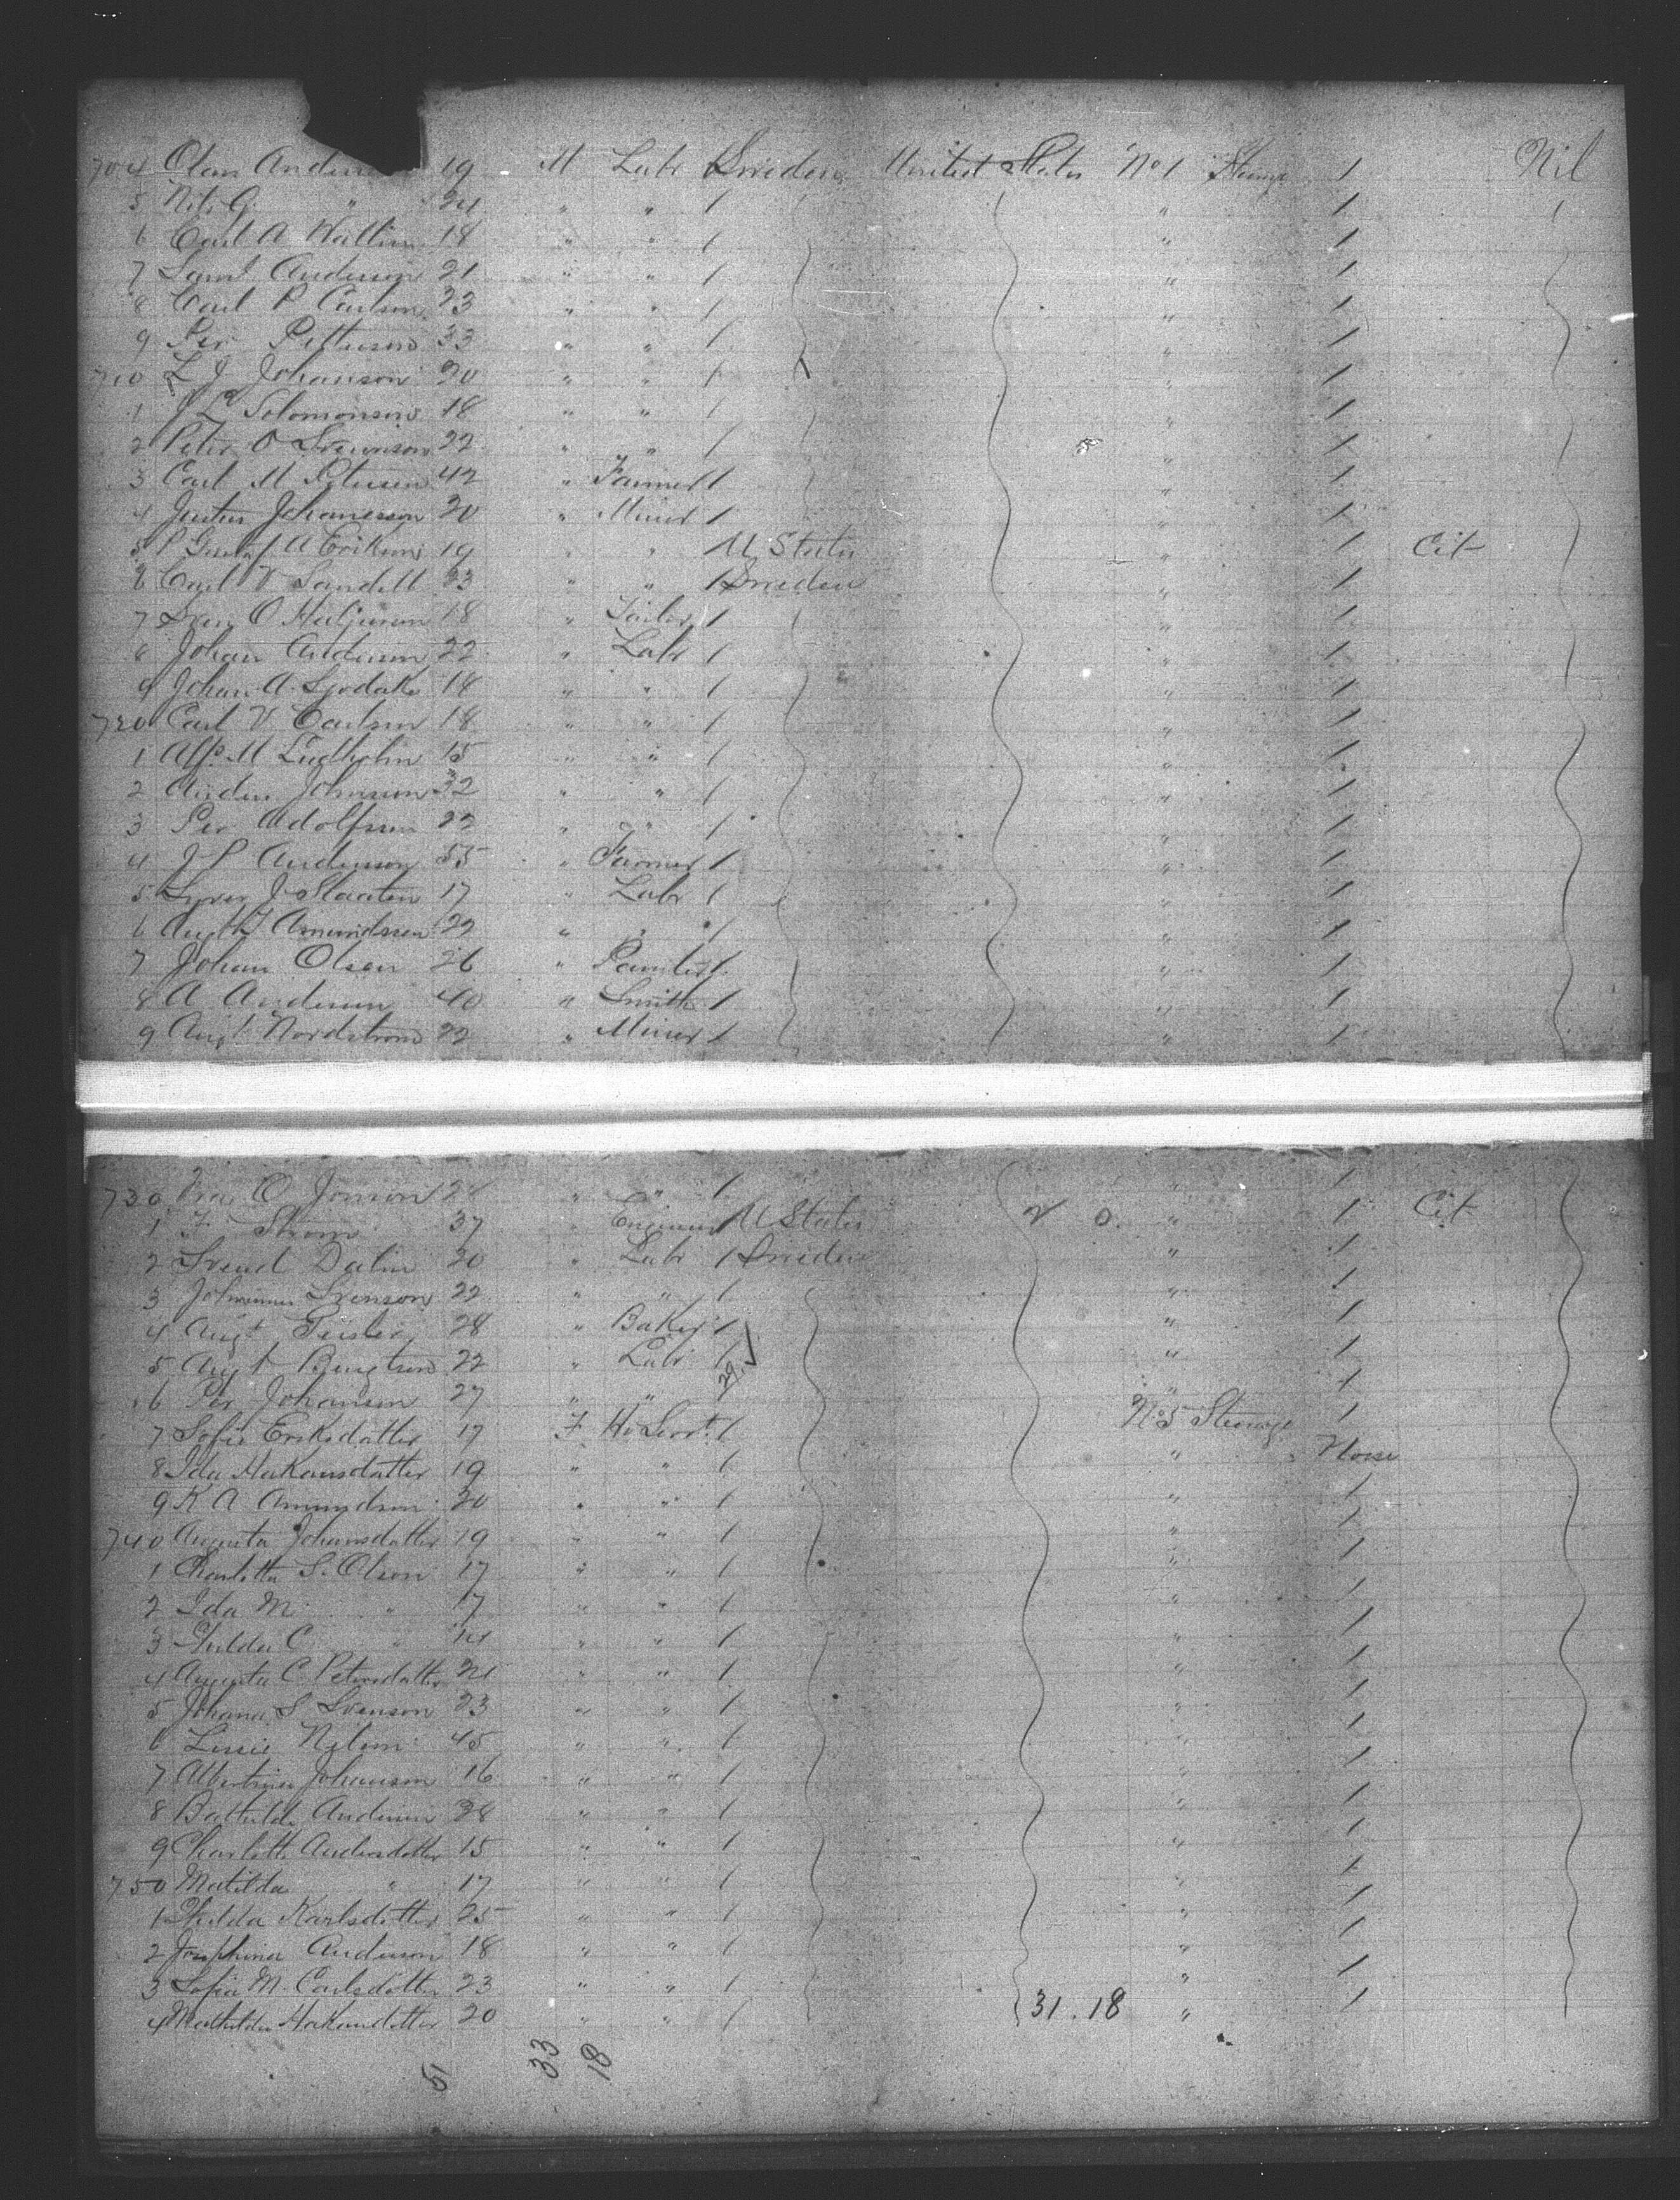 704 Olan Anders 19 M Labr Sweden United States No 1 Steerge 1 Nil
5 Nils G. " 24 " " / " 1
6 Carl A Wallin 18 " " / " 1
7 Saml Anderson 21 " " / " 1
8 Carl P Carlson 23 " " / " 1
9 Per Petterson 33 " " / " 1
710 L J Johanson 20 " " / " 1
1 J L Solomonson 18 " " / " 1
2 Peter O Svennson 22 " " / " 1
3 Carl M Petersen 42 " Farmer / " 1
4 Justus Johanesson 20 " Miner / " 1
5 P Gustaf A Erikson 19 " " / U States " 1 Cit
6 Carl V Sandell 33 " " / Sweden " 1
7 Sven O 18 " Tailor / " 1
8 Johan Anderson 22 " Labr / " 1
9 Johan A. 18 " " / " 1
720 Carl V Carlson 18 " " / " 1
1 M 15 " " / " 1
2 Anders Johnson 32 " " / " 1
3 Per Adolfson 22 " " / " 1
4 J P Anderson 55 " Farmer / " 1
5 J Slaaten 17 " Labr / " 1
6 Amundssen 22 " " / " 1
7 Johan Olsen 26 " Painter / " 1
8 A Anderson 40 " Smith / " 1
9 Augt Nordstrom 22 " Miner / " 1
730 O Jonson " " / " 1
1 F Strom 37 " Engineer / U States 2 0. " 1 Cit
2 Svend Dalin 20 " Labr / Sweden " 1
3 Johannes Svenson 22 " " / " 1
4 Augt 28 " Baker / " 1
5 Augt Bengtson 22 " Labr / " 1
6 Per Johanson 27 " " 29 " 1
7 Sofie Eriksdatter 17 F Ho Servt. / No 5 Steerage 1
8 Ida Hakansdatter 19 " " / "
9 K A Amundson 20 " " / " 1
740 Augusta Johansdatter 19 " " / " 1
1 Charlotta S. Olson 17 " " / " 1
2 Ida M " 17 " " / " 1
3 Hulda C " 14 " " / " 1
4 Augusta C Petersdatter 21 " " / " 1
5 Johana S Svenson 23 " " / " 1
6 Nelson 45 " " / " 1
7 Albertina Johanson 16 " " / " 1
8 Bathilda Anderson 28 " " / " 1
9 Charlotte Andersdatter 15 " " / " 1
750 Matilda " 17 " " / " 1
1 Hulda Karlsdatter 25 " " / " 1
2 Josphina Anderson 18 " " / " 1
3 Sofia M. Carlsdatter 23 " " / " 1
4 Mathilda Hakansdatter 20 " " / 31.18 " 1
51 33 18